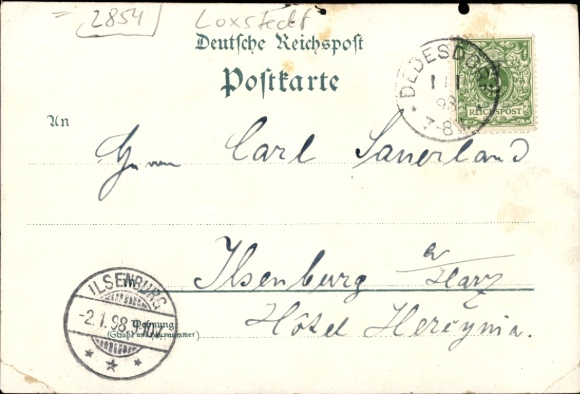 = 2854 Loxstedt
Deutsche Reichspost
Postkarte
DEDESDORF
1 1
98
7-8
REICHSPOST
An
Herrn Carl Sauerland
Ilsenburg a/Harz
Hôtel Hercynia.
ILSENBURG
-2.1.98.
Wohnung
(Straße und Hausnummer)